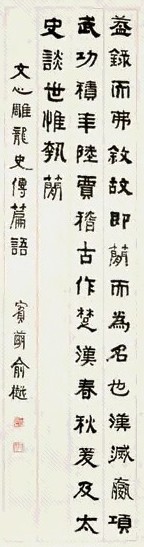 蓋錄而弗敘故即蕳而為名也漢滅嬴項
武功積年陸賈稽古作楚漢春秋爰及太
史談世惟執蕳
文心雕龍史傳篇語 賓萌俞樾